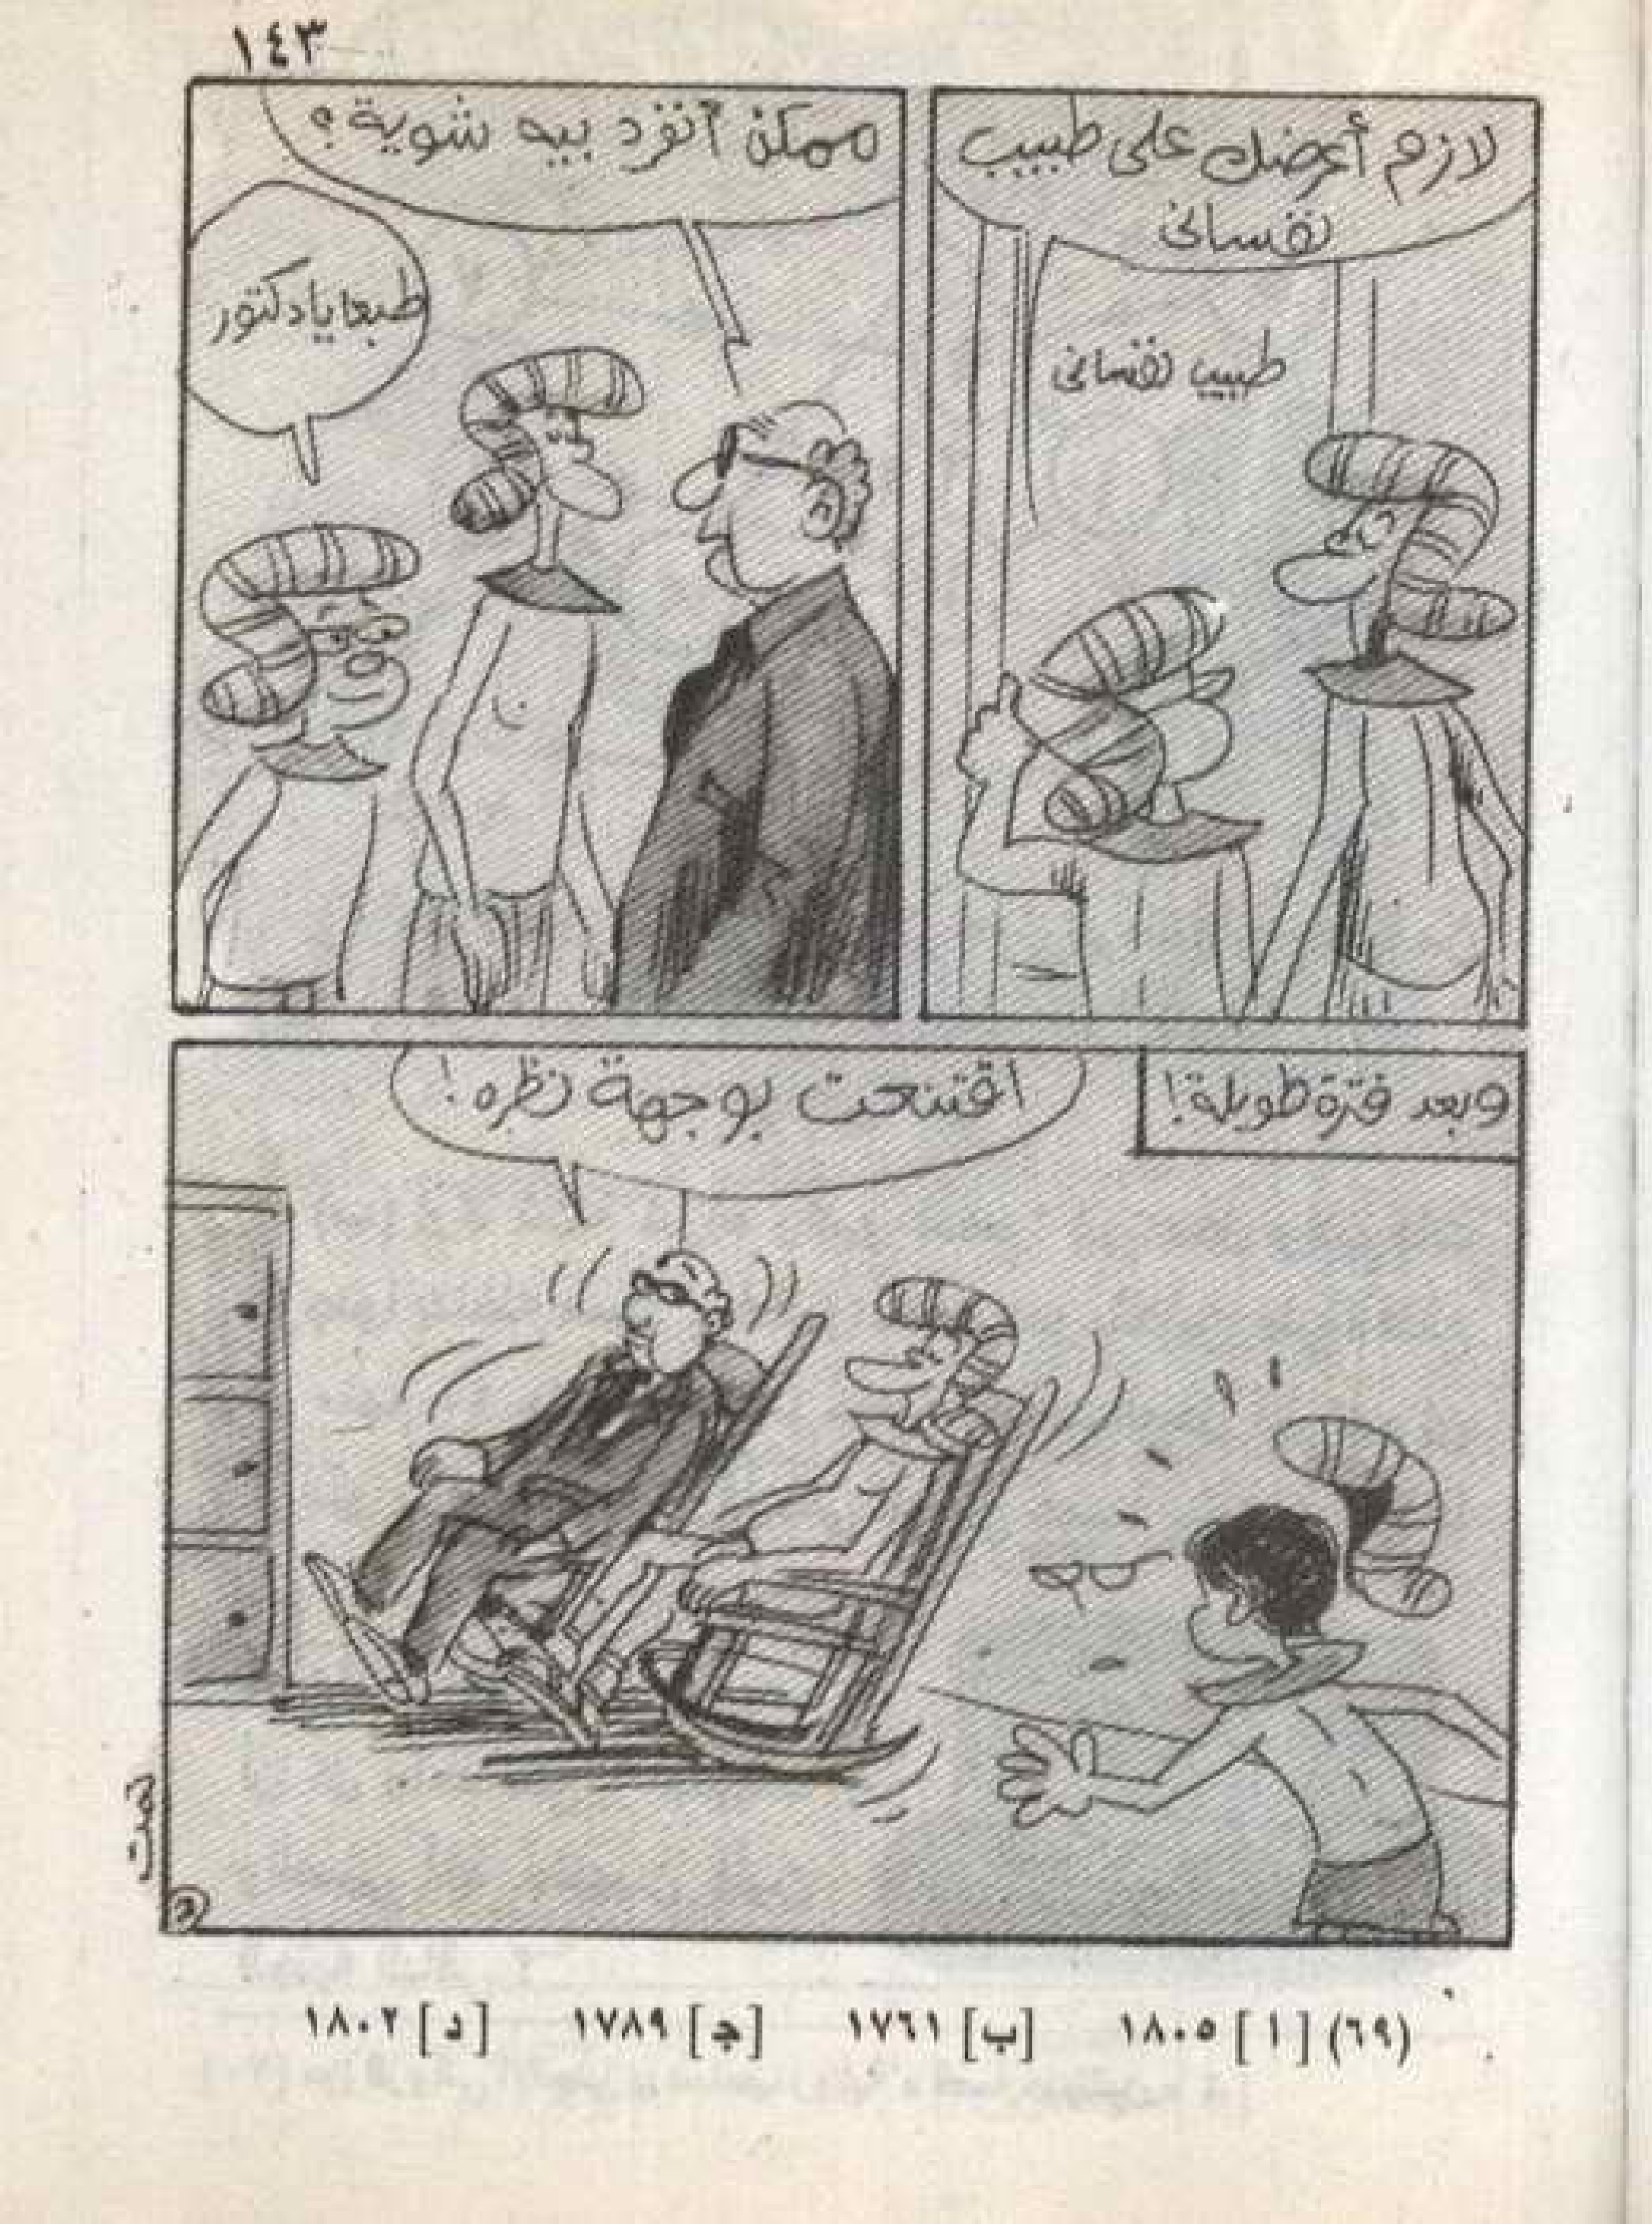 ١٤٣
لازم أعرضك على طبيب
نفسانى
طبيب نفسانى
ممكن أنفرد بيه شوية؟
طبعا يا دكتور
وبعد فترة طويلة!
اقتنعت بوجهة نظره!
(٦٩) [ ا ] ١٨٠٥ [ب] ١٧٦١ [جـ] ١٧٨٩ [د] ١٨٠٢